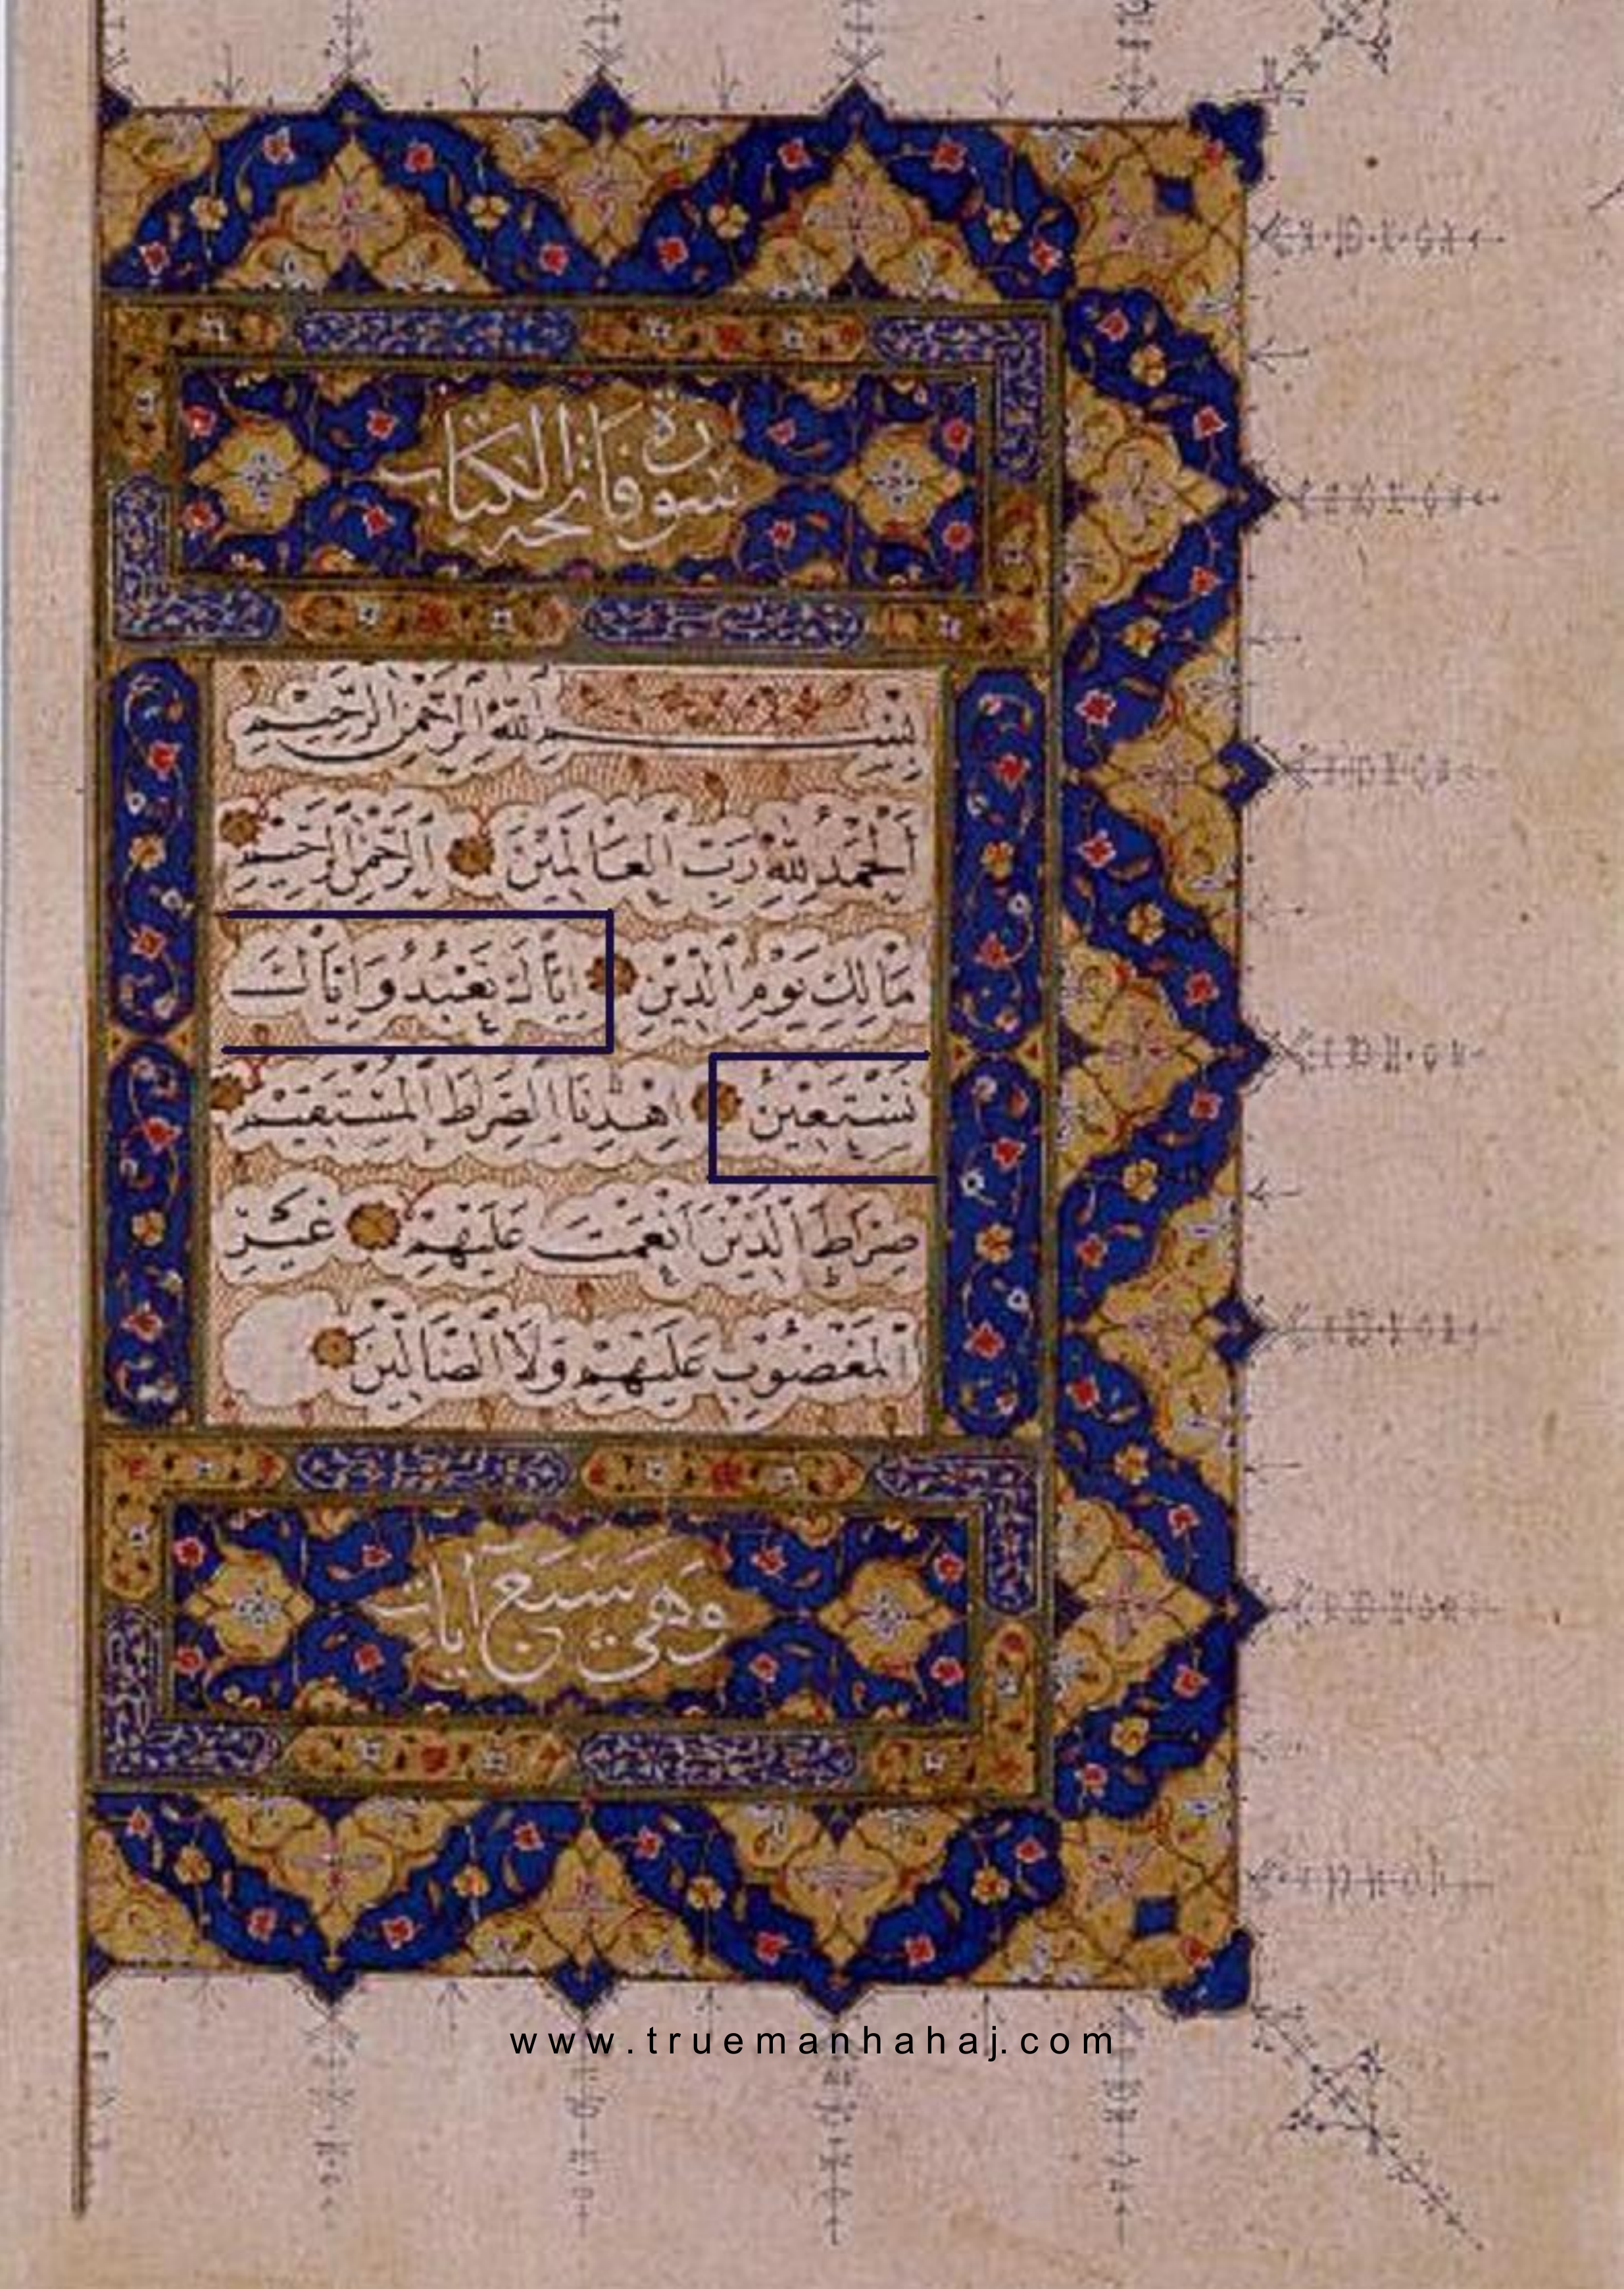 سورة فاتحة الكتاب
بِسْمِ اللّٰهِ الرَّحْمٰنِ الرَّحِيْمِ
اَلْحَمْدُ لِلّٰهِ رَبِّ الْعَالَمِيْنَ الرَّحْمٰنِ الرَّحِيْمِ
مَالِكِ يَوْمِ الدِّيْنِ اِيَّاكَ نَعْبُدُ وَاِيَّاكَ
نَسْتَعِيْنُ اِهْدِنَا الصِّرَاطَ الْمُسْتَقِيْمَ
صِرَاطَ الَّذِيْنَ اَنْعَمْتَ عَلَيْهِمْ غَيْرِ
الْمَغْضُوْبِ عَلَيْهِمْ وَلَا الضَّالِّيْنَ
وهي سبع آيات
www.truemanhahaj.com